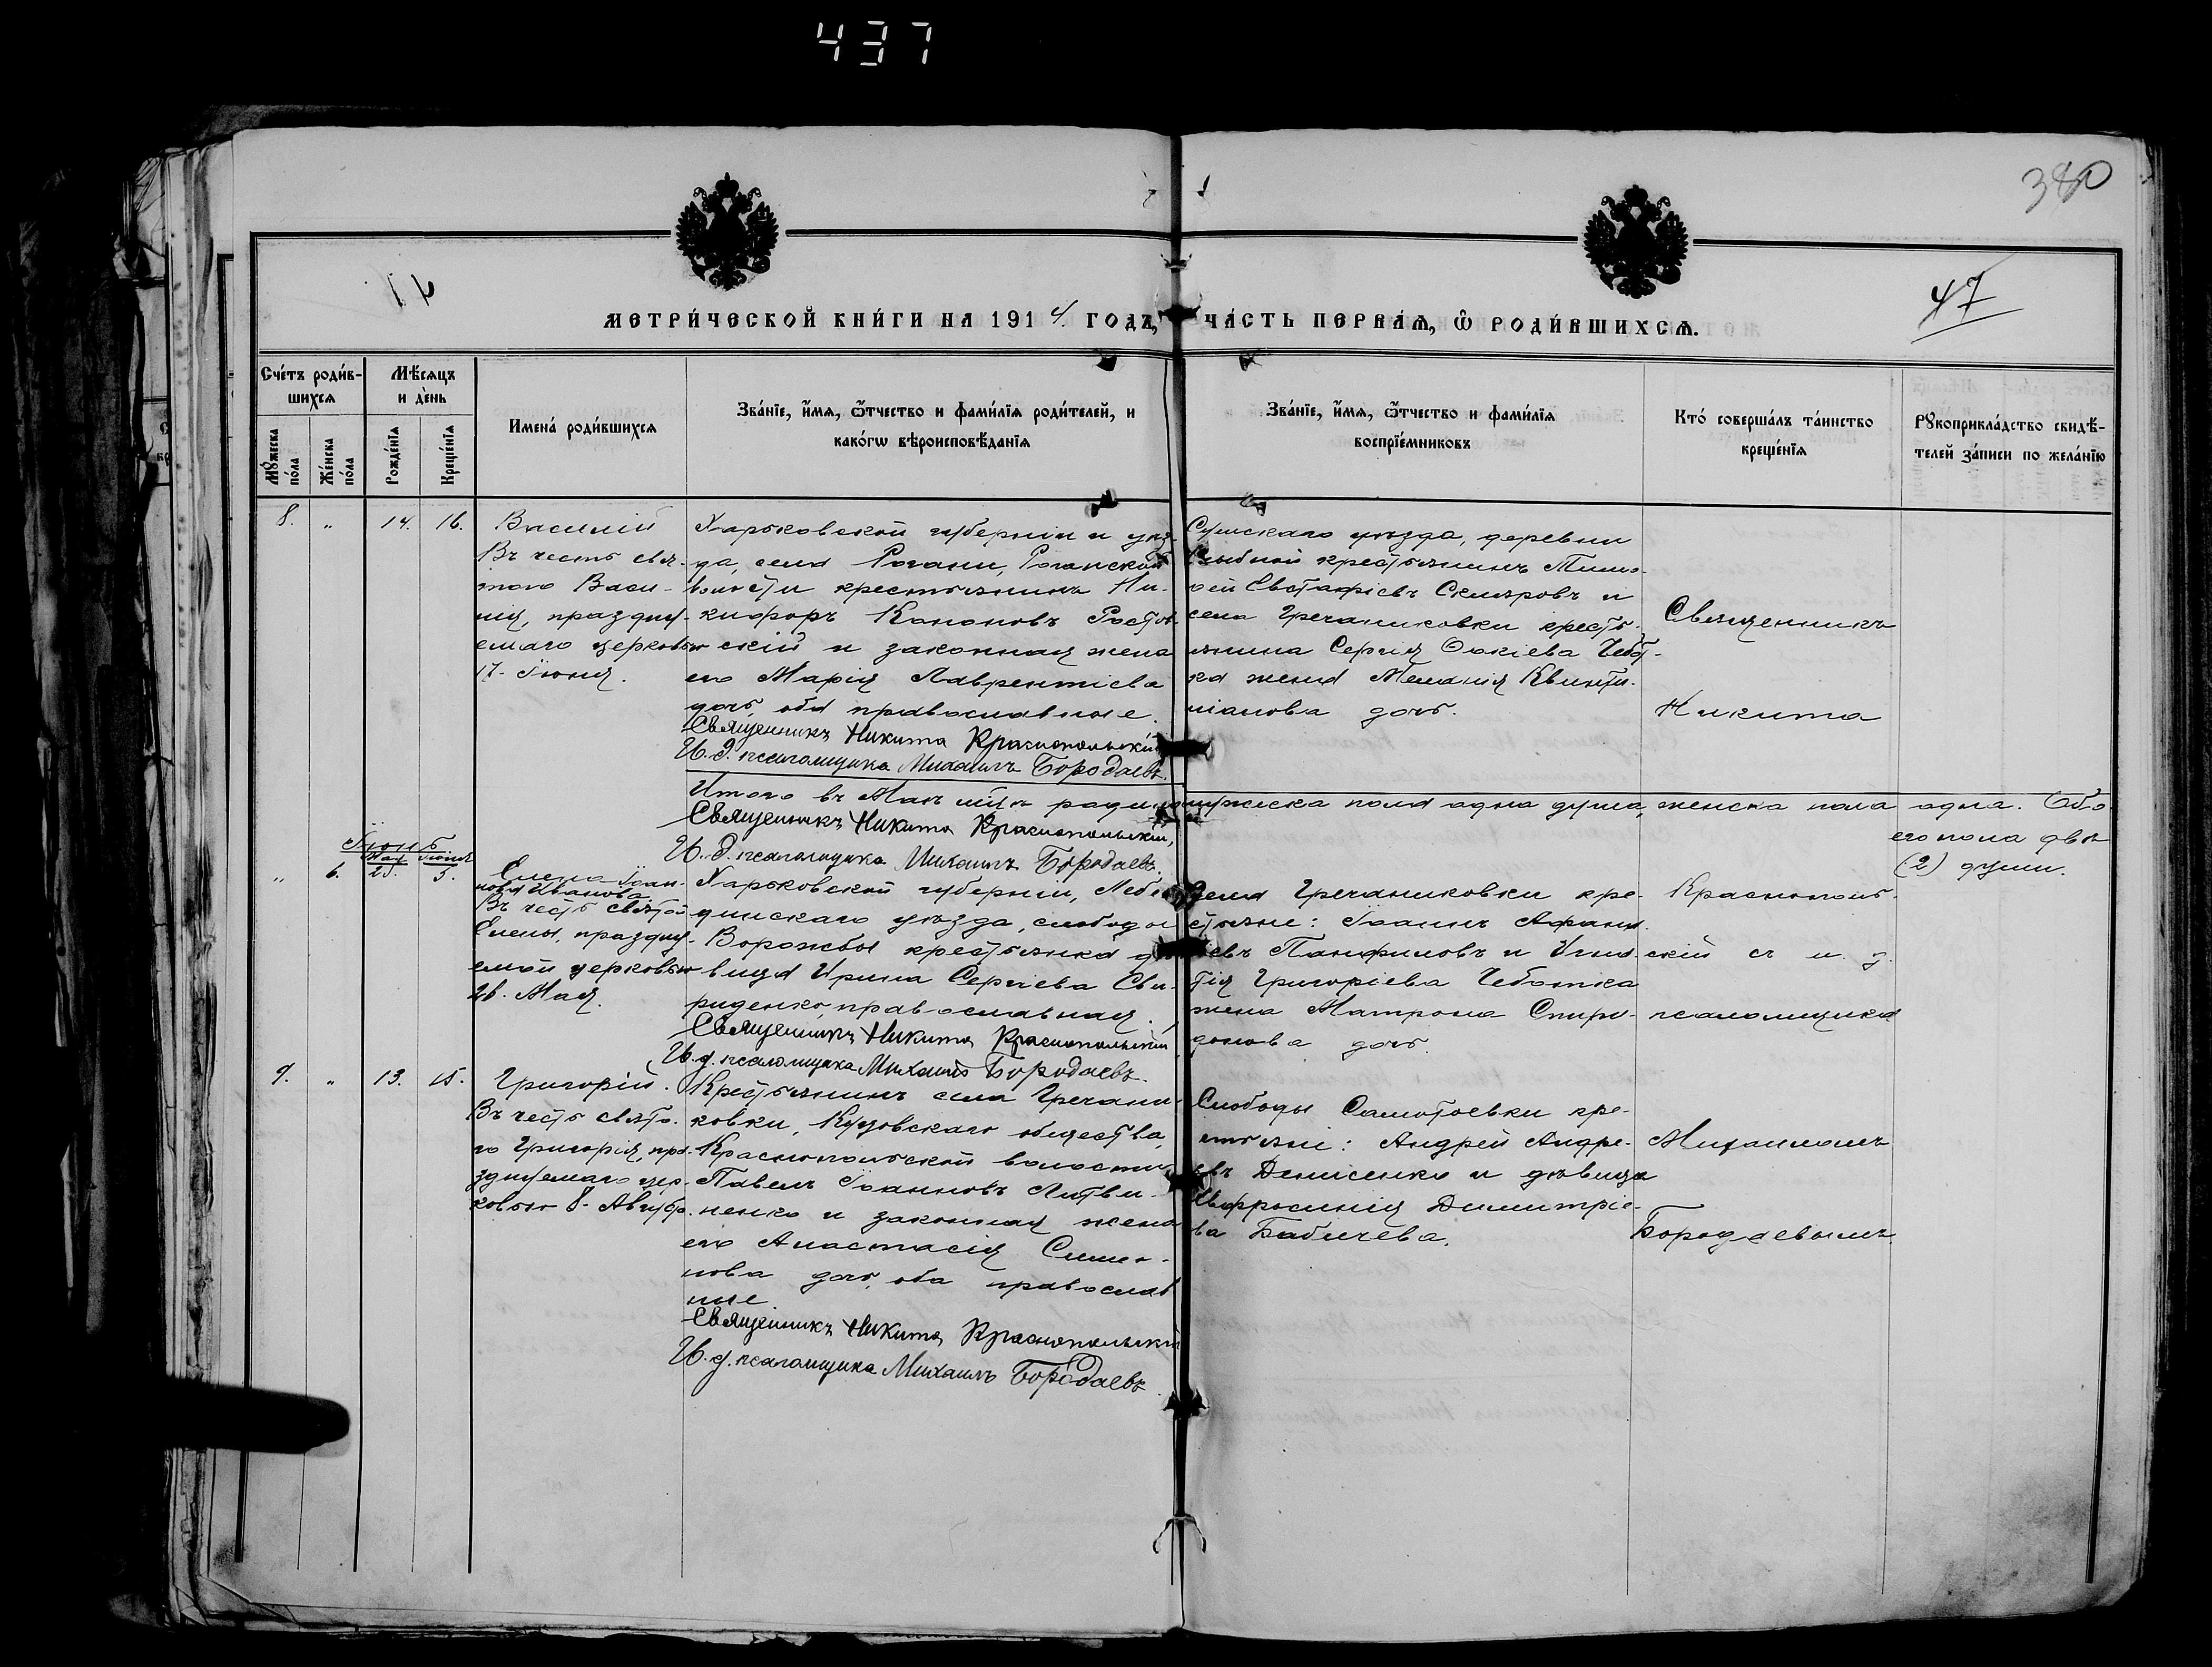 437
380
47
МЕТРИ́ЧЕСКОЙ КНИ́ГИ НА 1914 ГОДЪ, ЧА́СТЬ ПЕРВАѦ, Ѽ РОДИ́ВШИХСѦ.
Сче́тъ роди́в-
шихсѧ
Мѣ́сѧцъ
и де́нь
Имена́ роди́вшихсѧ
Зва́нїе, и҆́мѧ, ѻ҆́тчество и фами́лїѧ роди́телей, и
како́гѡ вѣроисповѣ́данїѧ
Зва́нїе, и҆́мѧ, ѻ҆́тчество и фами́лїѧ
воспрїе́мниковъ
Кто́ соверша́лъ та́инство
креще́нїѧ
Рꙋкоприкла́дство свидѣ́-
телей за́писи по жела́нїю
Мꙋ́жеска
по́ла
Же́нска
по́ла
Рожде́нїѧ
Креще́нїѧ
8. " 14. 16.
Василій
Въ честь свя-
того Васи-
лія, празднуемаго церковью
17. Іюня.
Харьковской губерніи и уѣз-
да, села Рогани, Роганской
волости крестьянинъ Ни-
кифоръ Кононовъ Ростов-
скій и законная жена
его Марія Лаврентіева
дочь, оба православные.
Священникъ Никита Краснопольскій
И. д. псаломщика Михаилъ Бородаевъ.
Сумскаго уѣзда, деревни
крестьянинъ Тимо-
ѳей Евстафіевъ Скляровъ и
села Гречаниковки кресть-
янина Сергія Фокіева Чебот-
ка жена Меланія Квинти-
ліанова дочь.
Священникъ
Никита
Итого въ Маѣ мѣс. родилось мужеска пола одна душа, женска пола одна. Обо-
его пола двѣ
(2) души.
Священникъ Никита Краснопольскій,
И. д. псаломщика Михаилъ Бородаевъ.
Іюнь
Мая Іюня
" 6. 25. 5.
Елена Іоан-
нова Иванова
Въ честь святой
Елены, праздну-
емой церковью
21. Мая.
Харьковской губерніи, Лебе-
динскаго уѣзда, слободы
Ворожбы крестьянка дѣ-
вица Ирина Сергіева Сви-
риденко, православная.
Священникъ Никита Краснопольскій
И. д. псаломщика Михаилъ Бородаевъ.
Села Гречаниковки кре-
стьяне: Іоаннъ Афана-
сіевъ Панфиловъ и Игна-
тія Григоріева Чеботка
жена Матрона Спири-
донова дочь.
Краснополь-
скій съ и. д.
псаломщика
9. " 13. 15.
Григорій.
Въ честь свято-
го Григорія, пра-
зднуемаго цер-
ковью 8. Августа.
Крестьянинъ села Гречани-
ковки, общества,
Краснопольской волости
Павелъ Іоанновъ Литви-
ненко и законная жена
его Анастасія Симео-
нова дочь, оба православ
ные.
Священникъ Никита Краснопольскій
И. д. псаломщика Михаилъ Бородаевъ.
Слободы Самотоевки кре-
стьяне: Андрей Андре-
евъ Денисенко и дѣвица
Евфросинія Димитріе-
ва Бабичева.
Михаиломъ
Бородаевымъ.